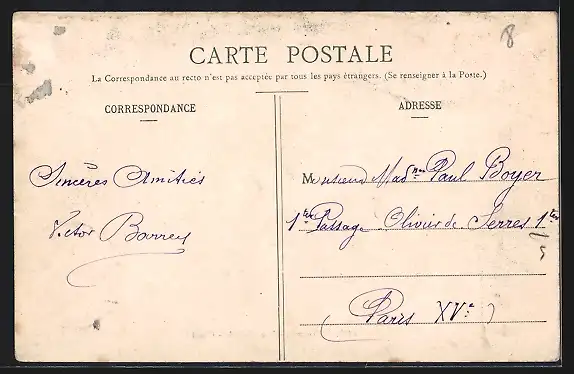 8
CARTE POSTALE
La Correspondance au recto n'est pas acceptée par tous les pays étrangers. (Se renseigner à la Poste.)
CORRESPONDANCE
ADRESSE
Sincères Amitiés
Victor
Monsieur Mad^me Paul Boyer
1^ter Passage Olivier de Serres 1^ter
15
Paris XV^e